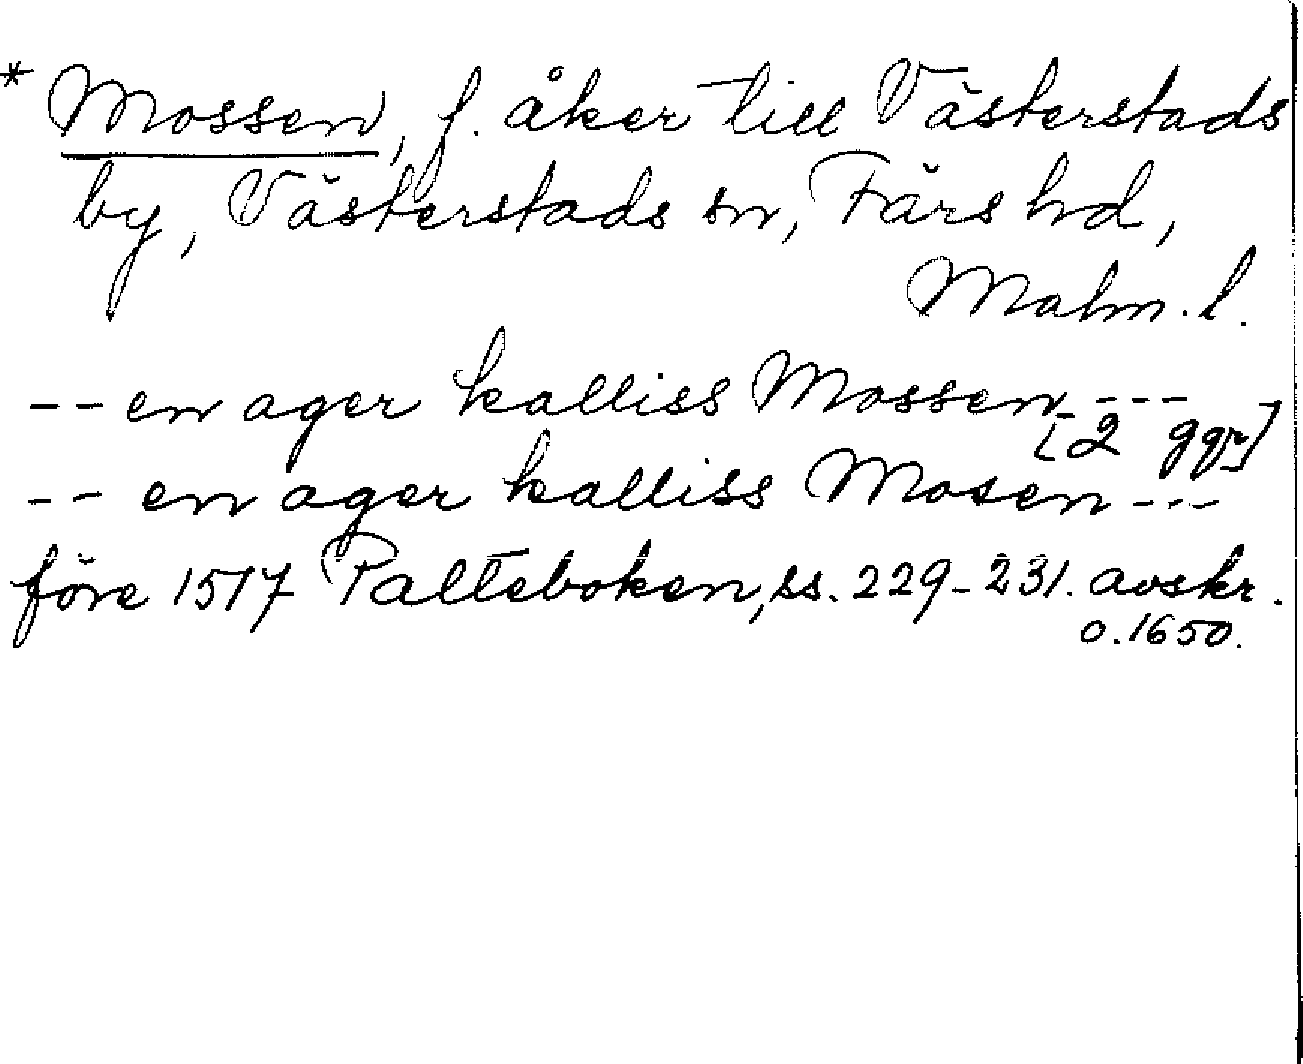 * Mossen, f. åker till Västerstads
by, Västerstads sn, Färs hd,
Malm. l.
-- en ager kalliss Mossen ---
[2 ggr]
-- en ager kalliss Mosen ---
före 1517 Palteboken, ss. 229-231. avskr.
o. 1650.